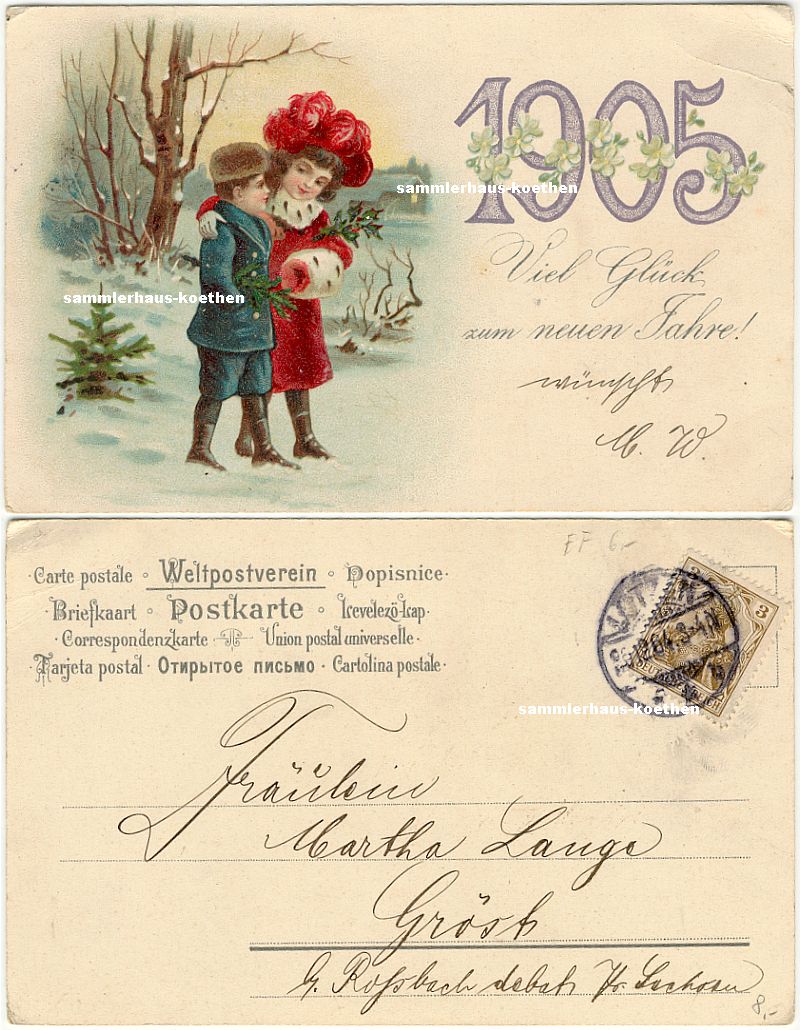 1905
sammlerhaus-koethen
Viel Glück
sammlerhaus-koethen
zum neuen Jahre!
wünscht
M. W.
EF 6,-
Carte postale Weltpostverein Dopisnice
Briefkaart Postkarte Levelezö-Lap
Correspondenzkarte Union postal universelle
Tarjeta postal Открытое письмо Cartolina postale
3 3
DEUTSCHES REICH
sammlerhaus-koethen
Fräulein
Martha Lange
Gröst
b. Roßbach
8,-